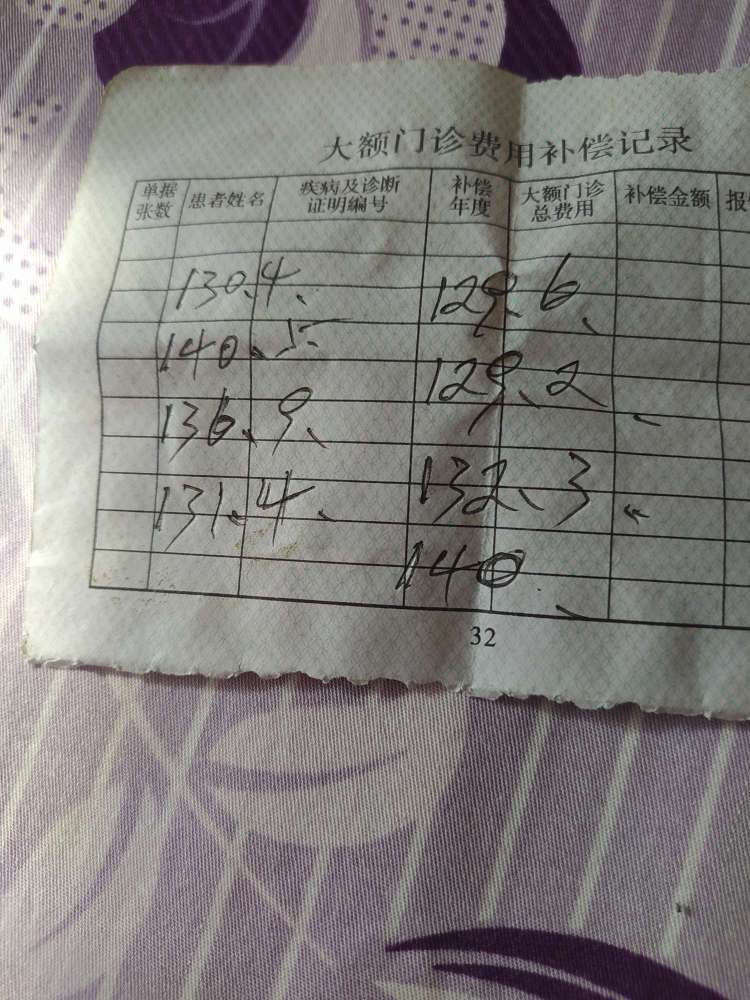 大额门诊费用补偿记录
单据张数 患者姓名 疾病及诊断证明编号 补偿年度 大额门诊总费用 补偿金额 报
130.4、 129、6、
140、5、 129、2、
136、9、 132、3、
131、4、 140、
32